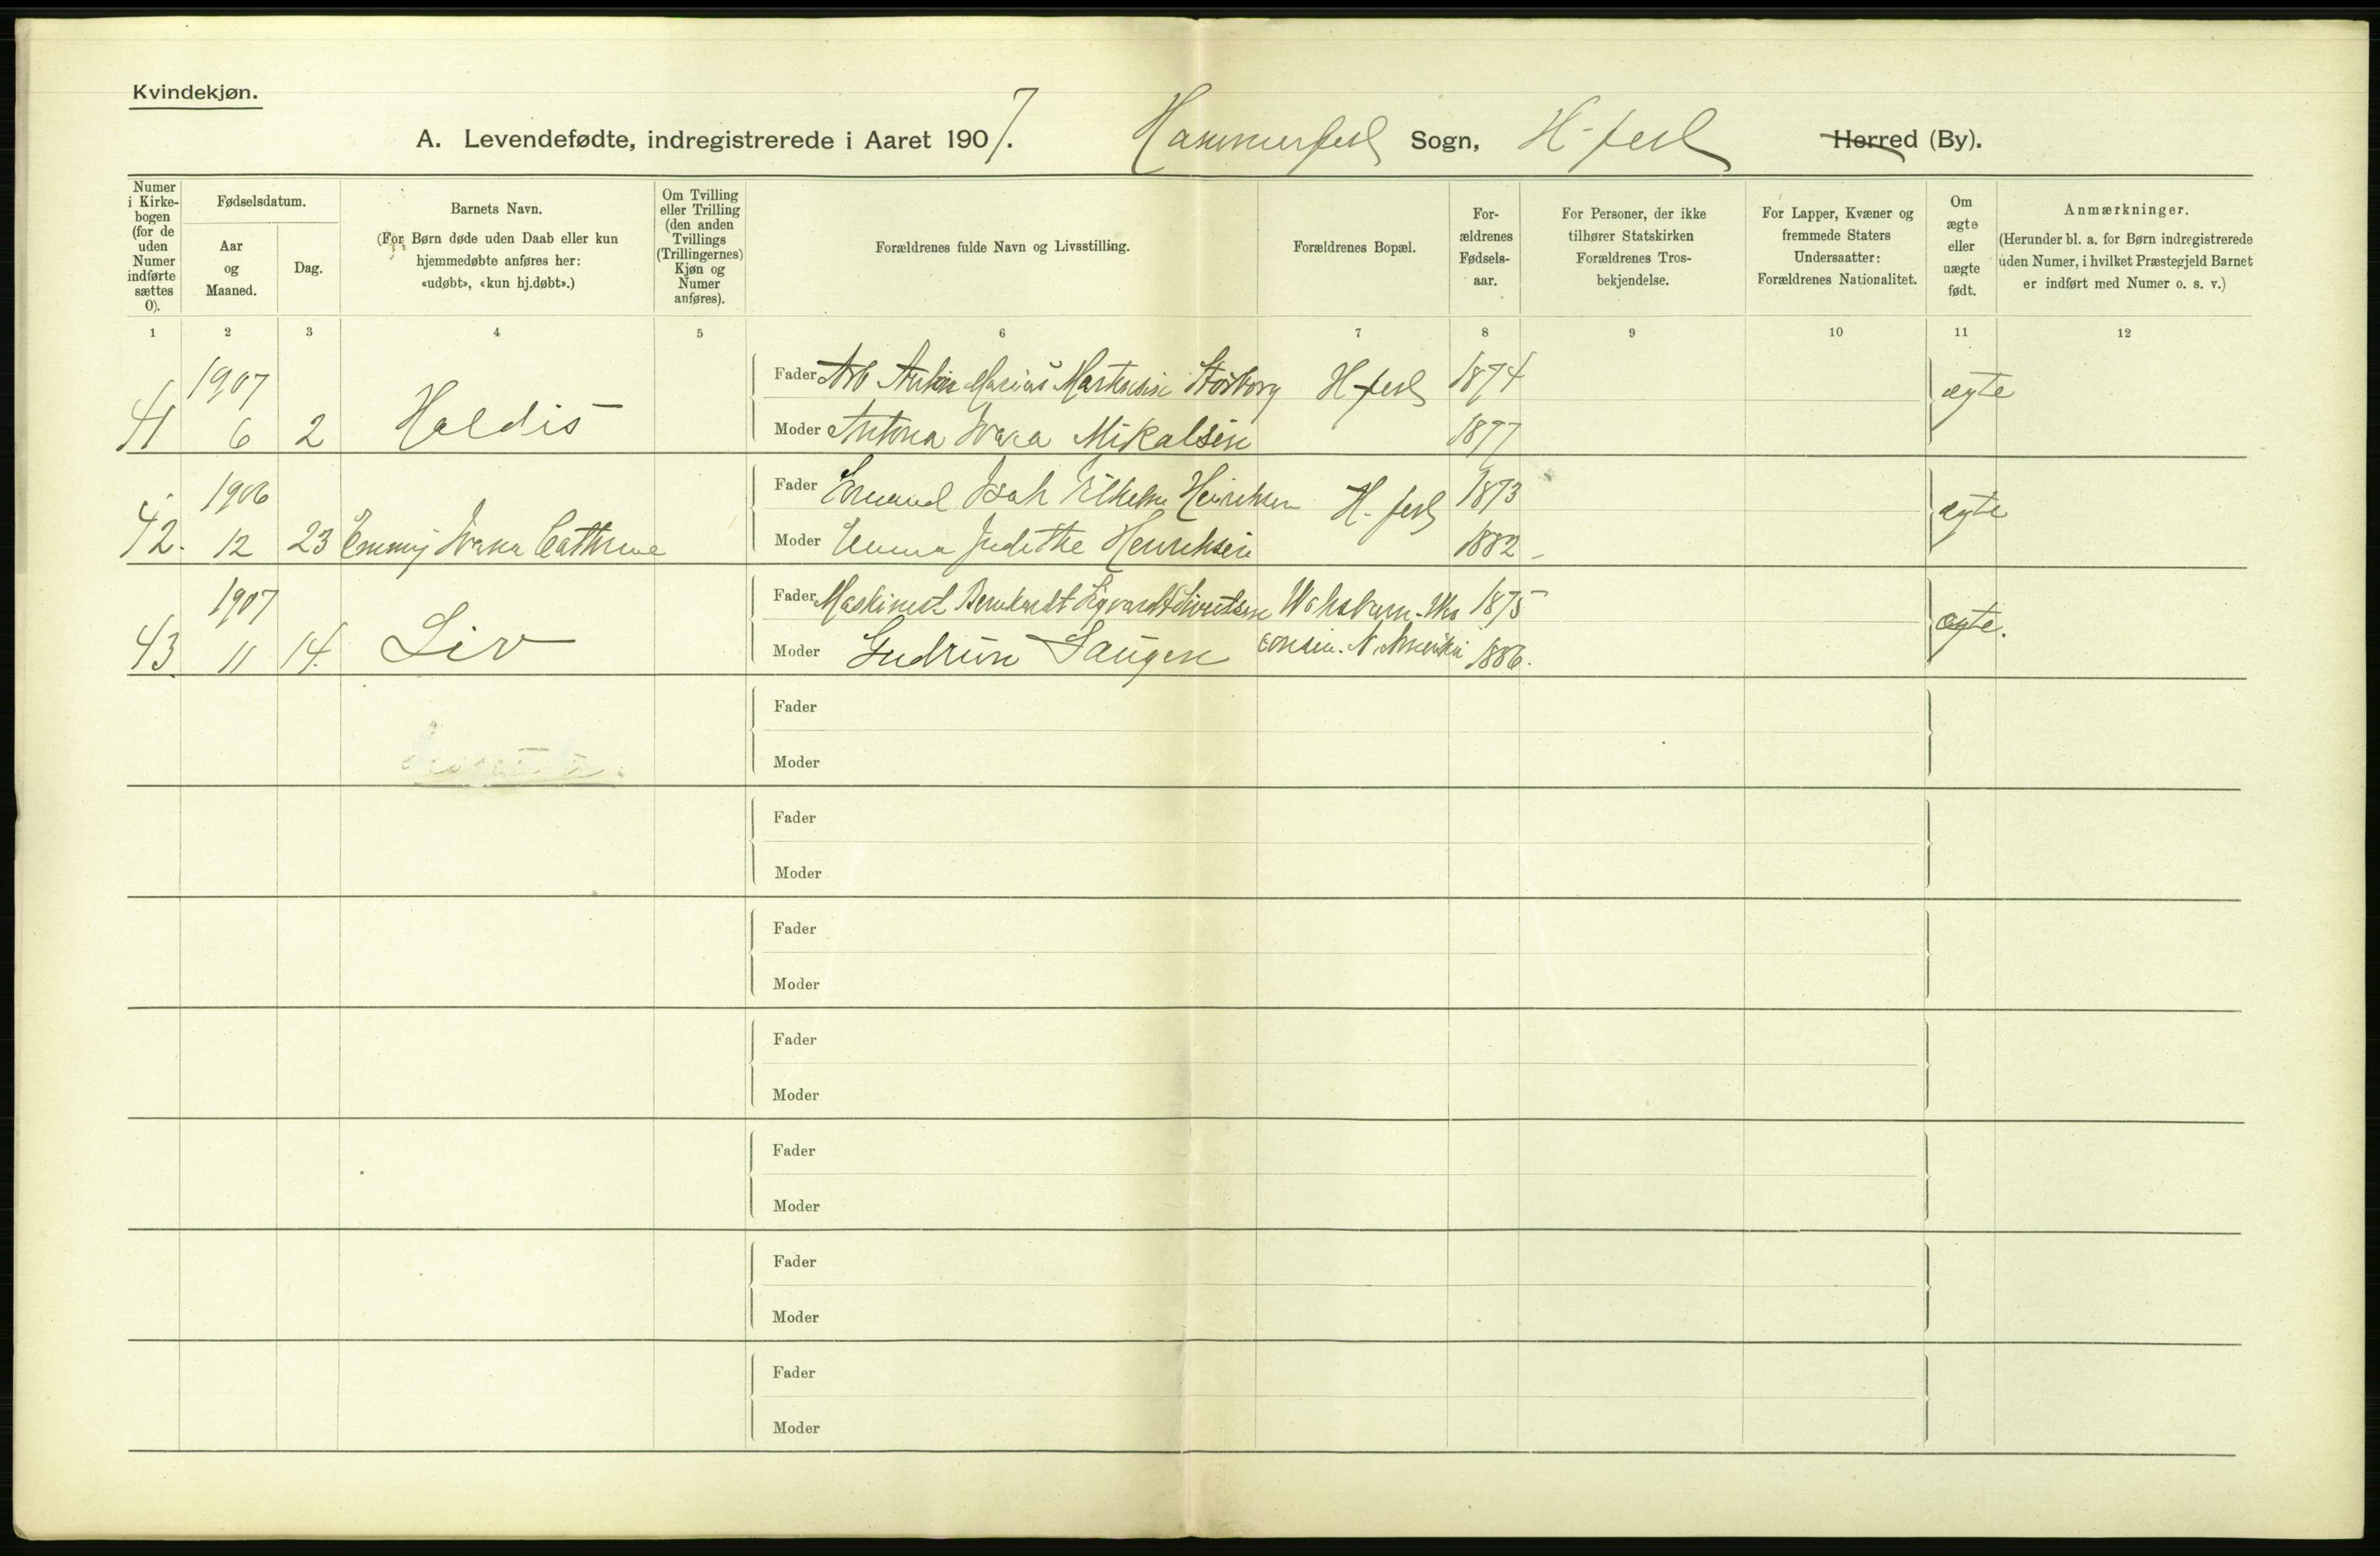 Kvindekjøn.
A. Levendefødte, indregistrerede i Aaret 1907. Hammerfest Sogn, H-fest Herred (By).
Numer i Kirkebogen (for de uden Numer indførte sættes 0).
Fødselsdatum.
Aar og Maaned.
Dag.
Barnets Navn.
(For Børn døde uden Daab eller kun hjemmedøbte anføres her: «udøbt», «kun hj.døbt».)
Om Tvilling eller Trilling (den anden Tvillings (Trillingernes) Kjøn og Numer anføres).
Forældrenes fulde Navn og Livsstilling.
Forældrenes Bopæl.
Forældrenes Fødselsaar.
For Personer, der ikke tilhører Statskirken Forældrenes Trosbekjendelse.
For Lapper, Kvæner og fremmede Staters Undersaatter: Forældrenes Nationalitet.
Om ægte eller uægte født.
Anmærkninger.
(Herunder bl. a. for Børn indregistrerede uden Numer, i hvilket Præstegjeld Barnet er indført med Numer o. s. v.)
1 2 3 4 5 6 7 8 9 10 11 12
1907 Fader Arb Anton Marius Martensen Storborg H-fest 1874 ægte
41 6 2 Haldis Moder Antona Mikalsen 1877
1906 Fader Isak Vilhelm Henriksen H-fest 1873 ægte
42. 12 23 Emmy Cathrine Moder Emma Judithe Henriksen 1882
1907 Fader Maskinist Bernhardt Sigvardt Sivertsen 1875 ægte.
43 11 14. Liv Moder Gudrun Saugen consin. N. Amerika 1886.
Fader
Moder
Fader
Moder
Fader
Moder
Fader
Moder
Fader
Moder
Fader
Moder
Fader
Moder